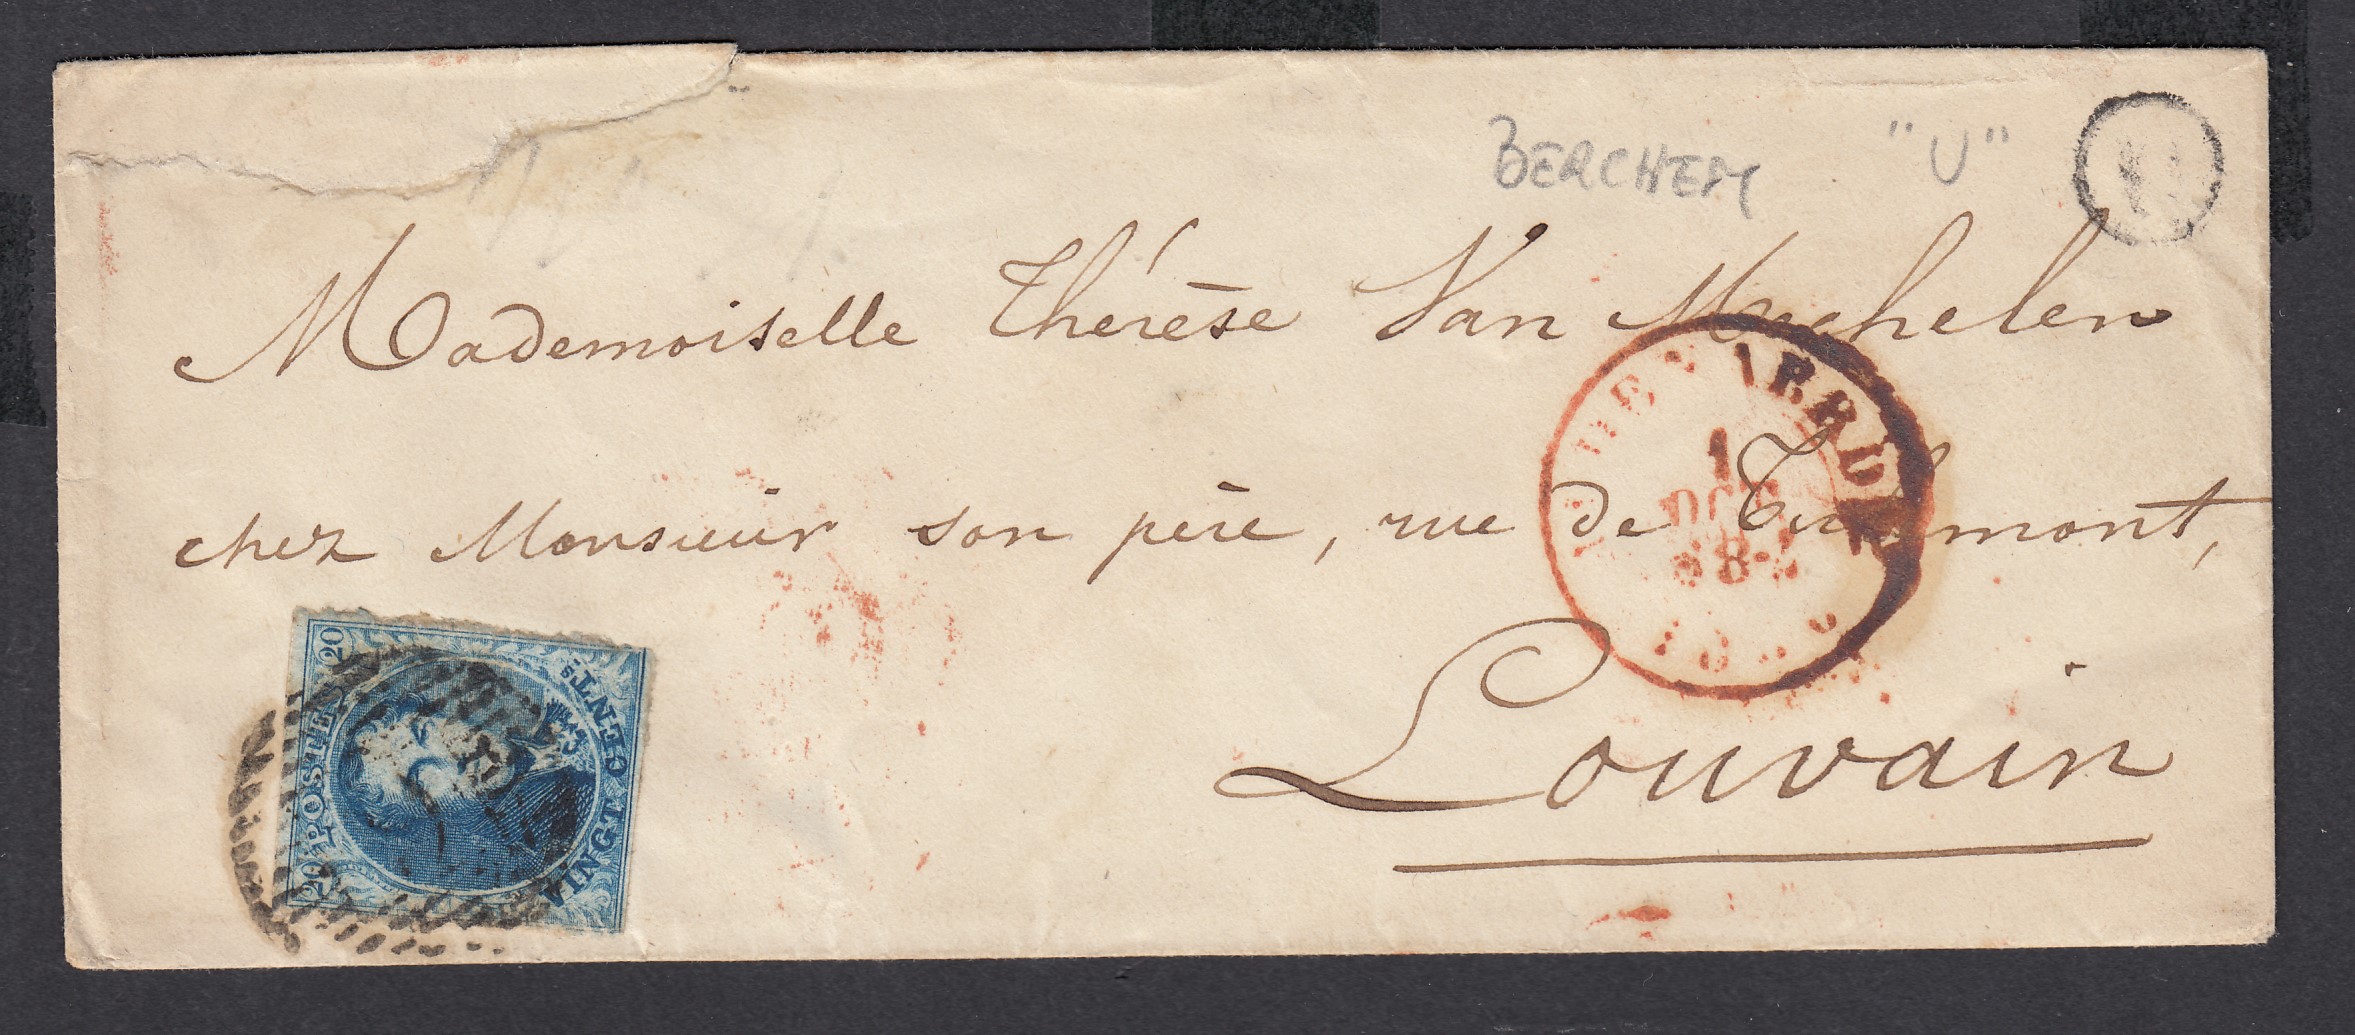 BERCHEM "U"
Mademoiselle Thérèse Van Mechelen
chez Monsieur son père, rue de Tirlemont,
Louvain
AUDENAERDE
1
OCT
POSTES
20
20
VINGT CENTS